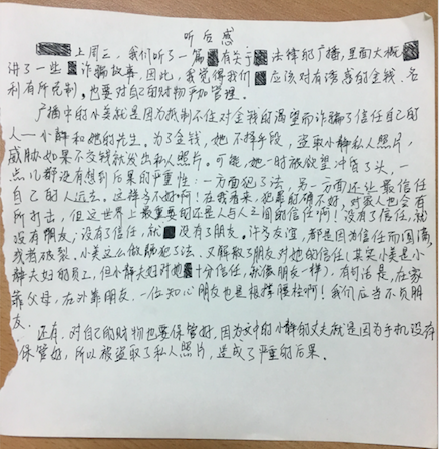 听后感
上周三，我们听了一篇有关于法律的广播，里面大概
讲了一些诈骗故事，因此，我觉得我们应该对有诱惑的金钱、名
利有所克制，也要对自己的财物严加管理。
广播中的小美就是因为抵制不住对金钱的渴望而诈骗了信任自己的
人—小静和她的先生。为了金钱，她不择手段，盗取小静私人照片，
威胁如果不交钱就发出私人照片。可能，她一时被欲望冲昏了头，一
点儿都没有想到后果的严重性：一方面犯了法，另一方面还让最信任
自己的人远去。这样多不好啊！在我看来，犯罪的确不好，对家人也会有
所打击，但这世界上最重要的还是人与人之间的信任啊！没有了信任，就
没有朋友；没有了信任，就没有了朋友。许多友谊，都是因为信任而圆满
或者破裂。小美这么做既犯了法，又解散了朋友对她的信任（其实小美是小
静夫妇的员工，但小静夫妇对她十分信任，就像朋友一样），有句话是，在家
靠父母，在外靠朋友。一位知心朋友也是根撑腰柱啊！我们应当不负朋
友。
还有，对自己的财物也要保管好，因为文中的小静的丈夫就是因为手机没有
保管好，所以被盗取了私人照片，造成了严重的后果。